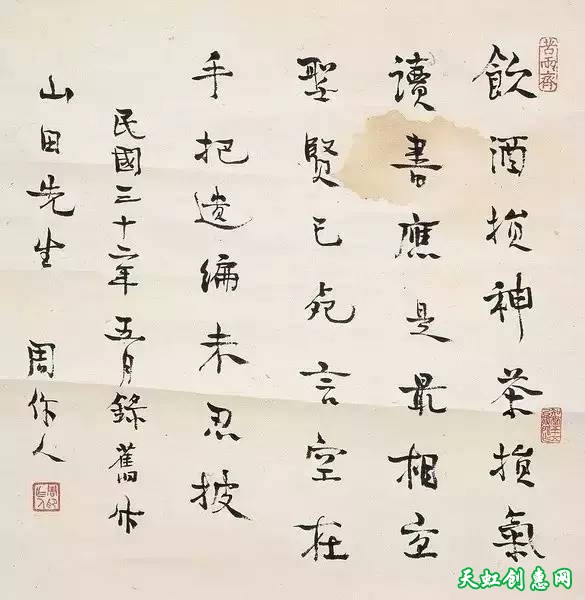 苦雨齋
飲酒損神茶損氣
讀書應是最相宜
聖賢已死言空在
手把遺編未忍披
民國三十二年五月錄舊作
山田先生 周作人
天虹创意网